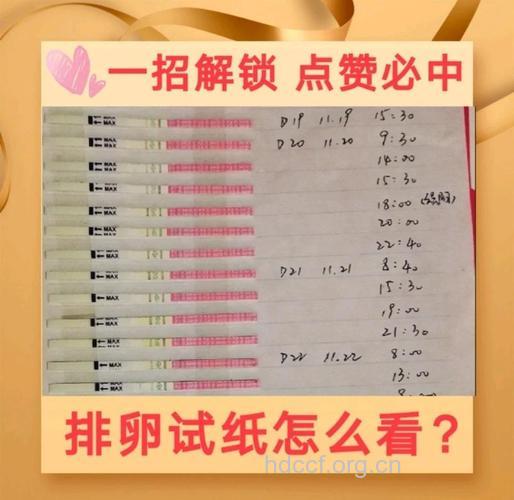 一招解锁 点赞必中
←MAX D19 11.19 15:30
←MAX D20 11.20 9:30
←MAX 14:00
←MAX 15:30
←MAX 18:00
←MAX 20:00
←MAX 22:40
←MAX D21 11.21 8:40
←MAX 15:30
←MAX 19:00
←MAX 21:30
←MAX D22 11.22 8:00
←MAX 13:00
排卵试纸怎么看？
hdccf.org.cn